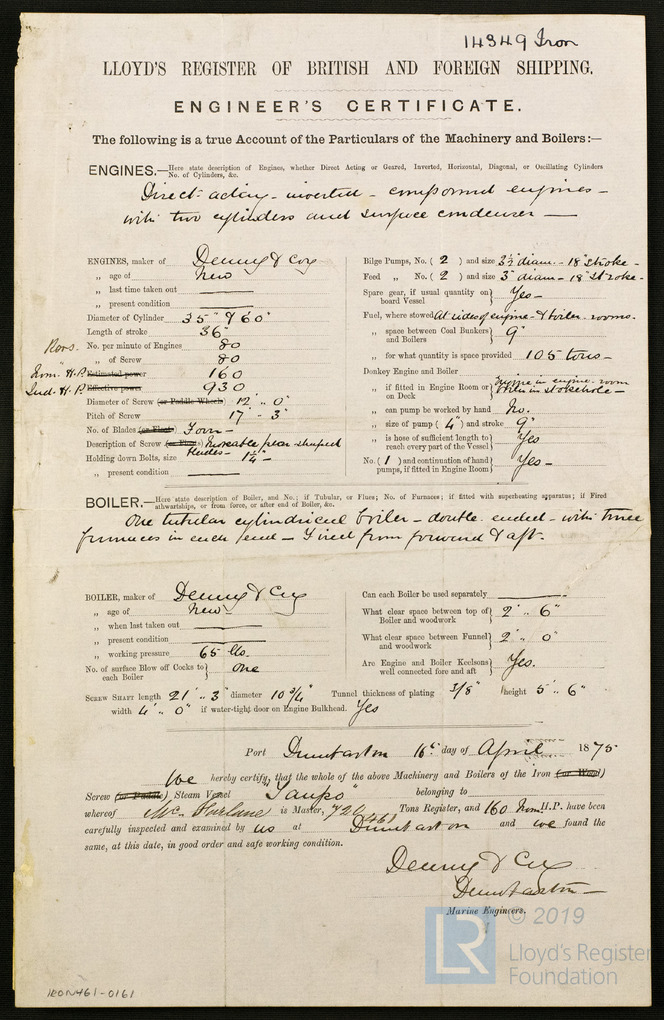 14349 Iron
LLOYD'S REGISTER OF BRITISH AND FOREIGN SHIPPING.
ENGINEER'S CERTIFICATE.
The following is a true Account of the Particulars of the Machinery and Boilers:—
ENGINES.—Here state description of Engines, whether Direct Acting or Geared, Inverted, Horizontal, Diagonal, or Oscillating Cylinders
No. of Cylinders, &c.
Direct-acting - inverted - compound engines -
with two cylinders and surface condenser —
ENGINES, maker of Denny & Coy
„ age of New
„ last time taken out —
„ present condition —
Diameter of Cylinder 35" & 60"
Length of stroke 36"
Revs. No. per minute of Engines 80
„ of Screw 80
Nom. H.P. Estimated power 160
Ind. H.P. Effective power 930
Diameter of Screw (or Paddle Wheels) 12' „ 0"
Pitch of Screw 17' - 3"
No. of Blades (or Floats) Four -
Description of Screw (or Floats) Moveable pear-shaped
blades -
Holding down Bolts, size 1¼" -
„ present condition —
Bilge Pumps, No. ( 2 ) and size 3½" diam. - 18" stroke -
Feed „ No. ( 2 ) and size 3" diam - 18" stroke -
Spare gear, if usual quantity on board Vessel } Yes -
Fuel, where stowed At sides of engine - & boiler - rooms.
„ space between Coal Bunkers and Boilers } 9"
„ for what quantity is space provided 105 tons -
Donkey Engine and Boiler
„ if fitted in Engine Room or on Deck } Engine in engine-room
Boiler in stokehole -
„ can pump be worked by hand No.
„ size of pump ( 4" ) and stroke 9"
„ is hose of sufficient length to reach every part of the Vessel } Yes
No. ( 1 ) and continuation of hand pumps, if fitted in Engine Room } Yes -
BOILER.—Here state description of Boiler, and No.; if Tubular, or Flues; No. of Furnaces; if fitted with superheating apparatus; if Fired
athwartships, or from force, or after end of Boiler, &c.
One tubular cylindrical boiler - double-ended - with three
furnaces in each end - Fired from forward & aft.
BOILER, maker of Denny & Coy
„ age of New -
„ when last taken out —
„ present condition —
„ working pressure 65 lbs.
No. of surface Blow off Cocks to each Boiler } One
Can each Boiler be used separately —
What clear space between top of Boiler and woodwork } 2' „ 6"
What clear space between Funnel and woodwork } 2' „ 0"
Are Engine and Boiler Keelsons well connected fore and aft } Yes.
SCREW SHAFT length 21' „ 3" diameter 10¾" Tunnel thickness of plating 3/8" height 5' „ 6"
width 4' „ 0" if water-tight door on Engine Bulkhead. Yes
Port Dumbarton 16th day of April 1875
We hereby certify, that the whole of the above Machinery and Boilers of the Iron (or Wood)
Screw (or Paddle) Steam Vessel "Taupo" belonging to
whereof Mc. Farlane is Master, 720 461 Tons Register, and 160 Nom H.P. have been
carefully inspected and examined by us at Dumbarton and we found the
same, at this date, in good order and safe working condition.
Denny & Coy
Dumbarton -
Marine Engineers.
IRON461-0161
LR © 2019
Lloyd's Register
Foundation